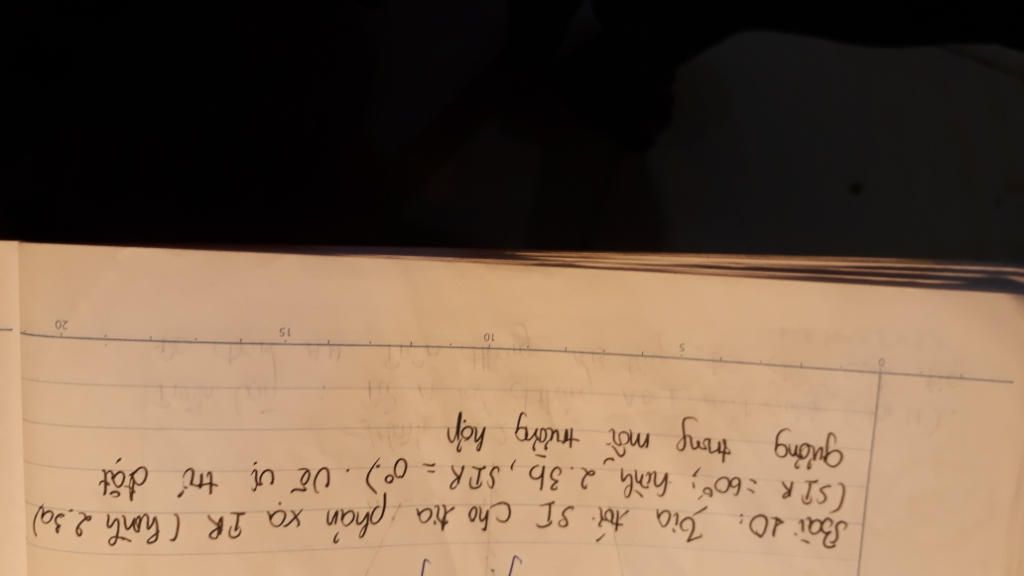 Bài 10: Tia tới SI cho tia phản xạ IR (hình 2.3a)
(SIR = 60°; hình 2.3b, SIR = 0°). Vẽ vị trí đặt
gương trong mỗi trường hợp
0 5 10 15 20